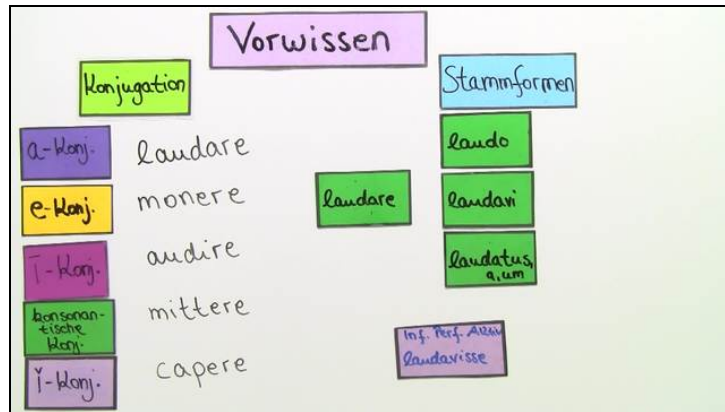 Vorwissen
Konjugation
a-Konj.
laudare
e-Konj.
monere
ī-Konj.
audire
konsonan-
tische
Konj.
mittere
ĭ-Konj.
capere
Stammformen
laudo
laudare
laudavi
laudatus,
a, um
Inf. Perf. Aktiv
laudavisse